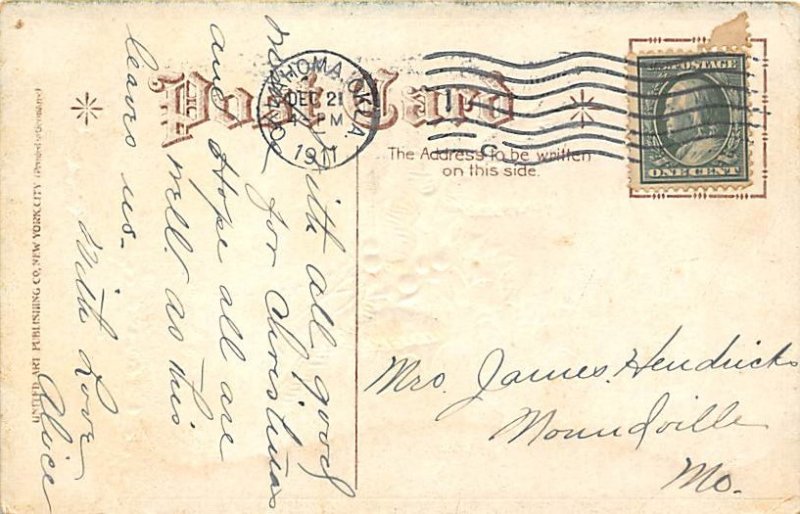 Post Card
The Address to be written
on this side.
OKLAHOMA, OKLA.
DEC 21
PM
1911
C
U.S. POSTAGE
ONE CENT
With all good
for Christmas
and Hope all are
well. as this
leaves us.
With Love
Alice
Mrs. James. Hendricks
Moundville
Mo.
UNITED ART PUBLISHING CO, NEW YORK CITY